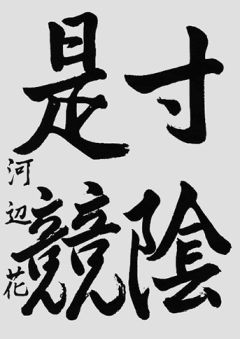 寸陰
是競
河辺花